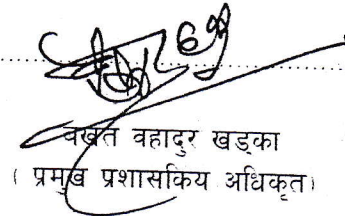 वखत वहादुर खड्का
( प्रमुख प्रशासकिय अधिकृत)